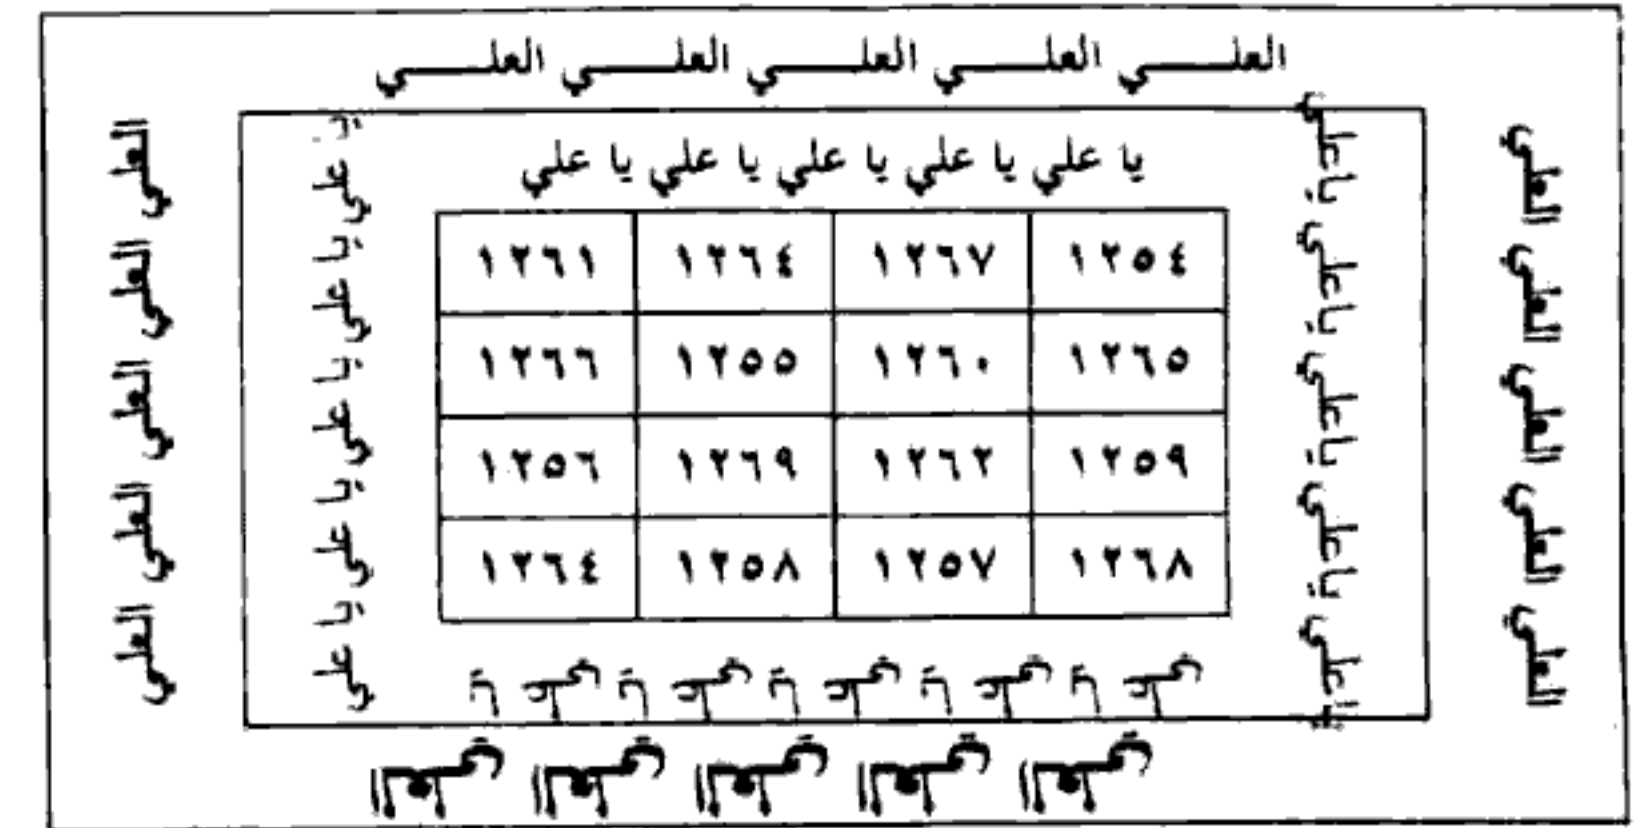 العلي العلي العلي العلي العلي
يا علي يا علي يا علي يا علي يا علي
ياعلي ياعلي ياعلي ياعلي ياعلي
العلي العلي العلي العلي العلي
١٢٦١ ١٢٦٤ ١٢٦٧ ١٢٥٤
١٢٦٦ ١٢٥٥ ١٢٦٠ ١٢٦٥
١٢٥٦ ١٢٦٩ ١٢٦٢ ١٢٥٩
١٢٦٤ ١٢٥٨ ١٢٥٧ ١٢٦٨
يا علي يا علي يا علي يا علي يا علي
العلي العلي العلي العلي العلي
يا علي يا علي يا علي يا علي يا علي
العلي العلي العلي العلي العلي